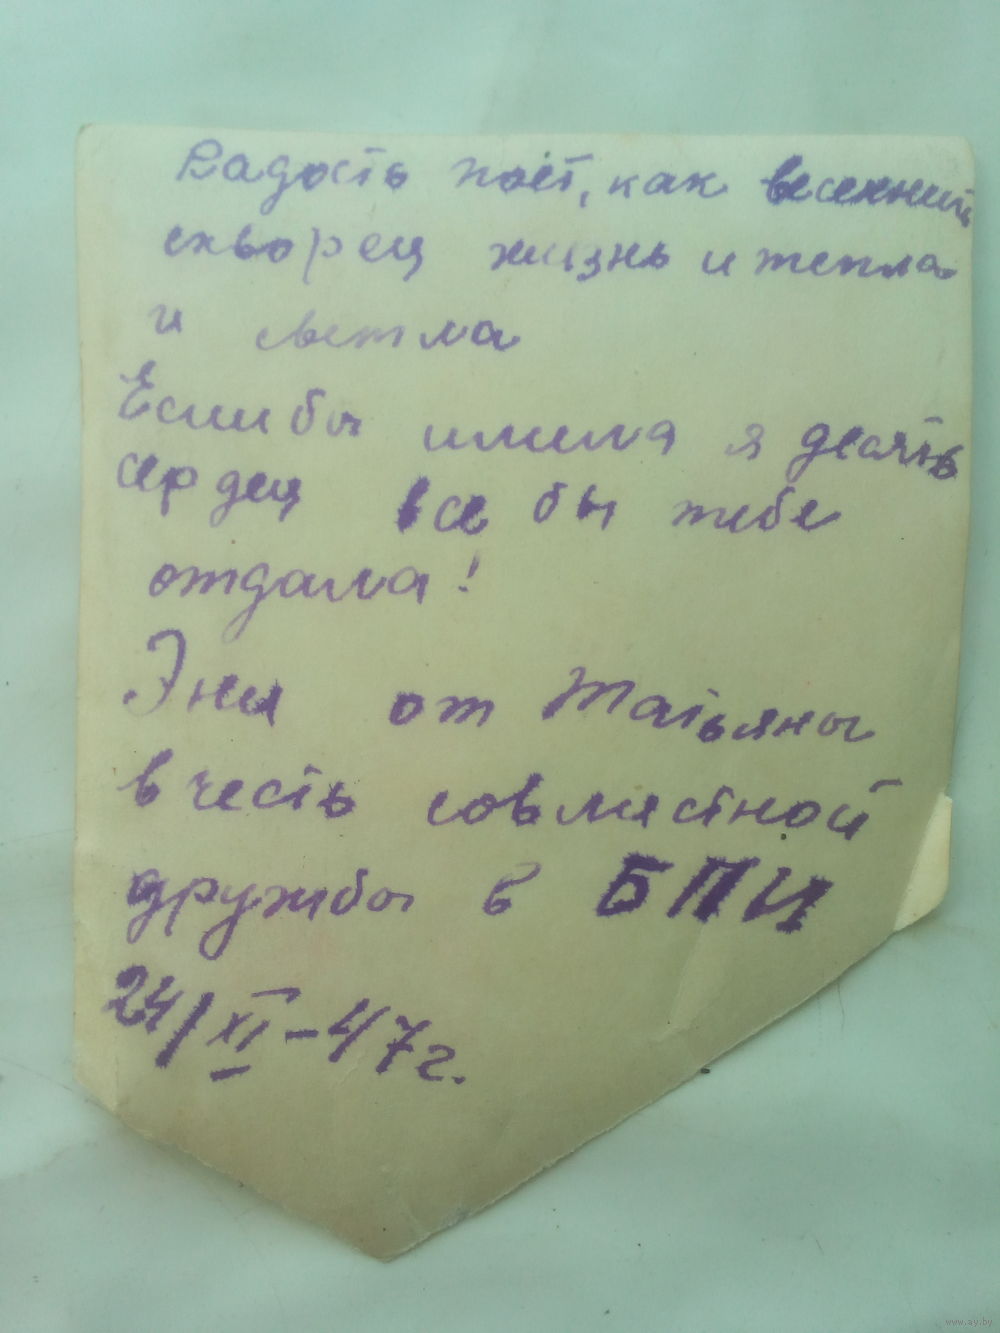 Радость поёт, как весенний
скворец жизнь и тепла
и светла
Если бы имела я десять
сердец все бы тебе
отдала!
Эни от Татьяны
в честь совместной
дружбы в БПИ
24/XI-47г.
www.ay.by